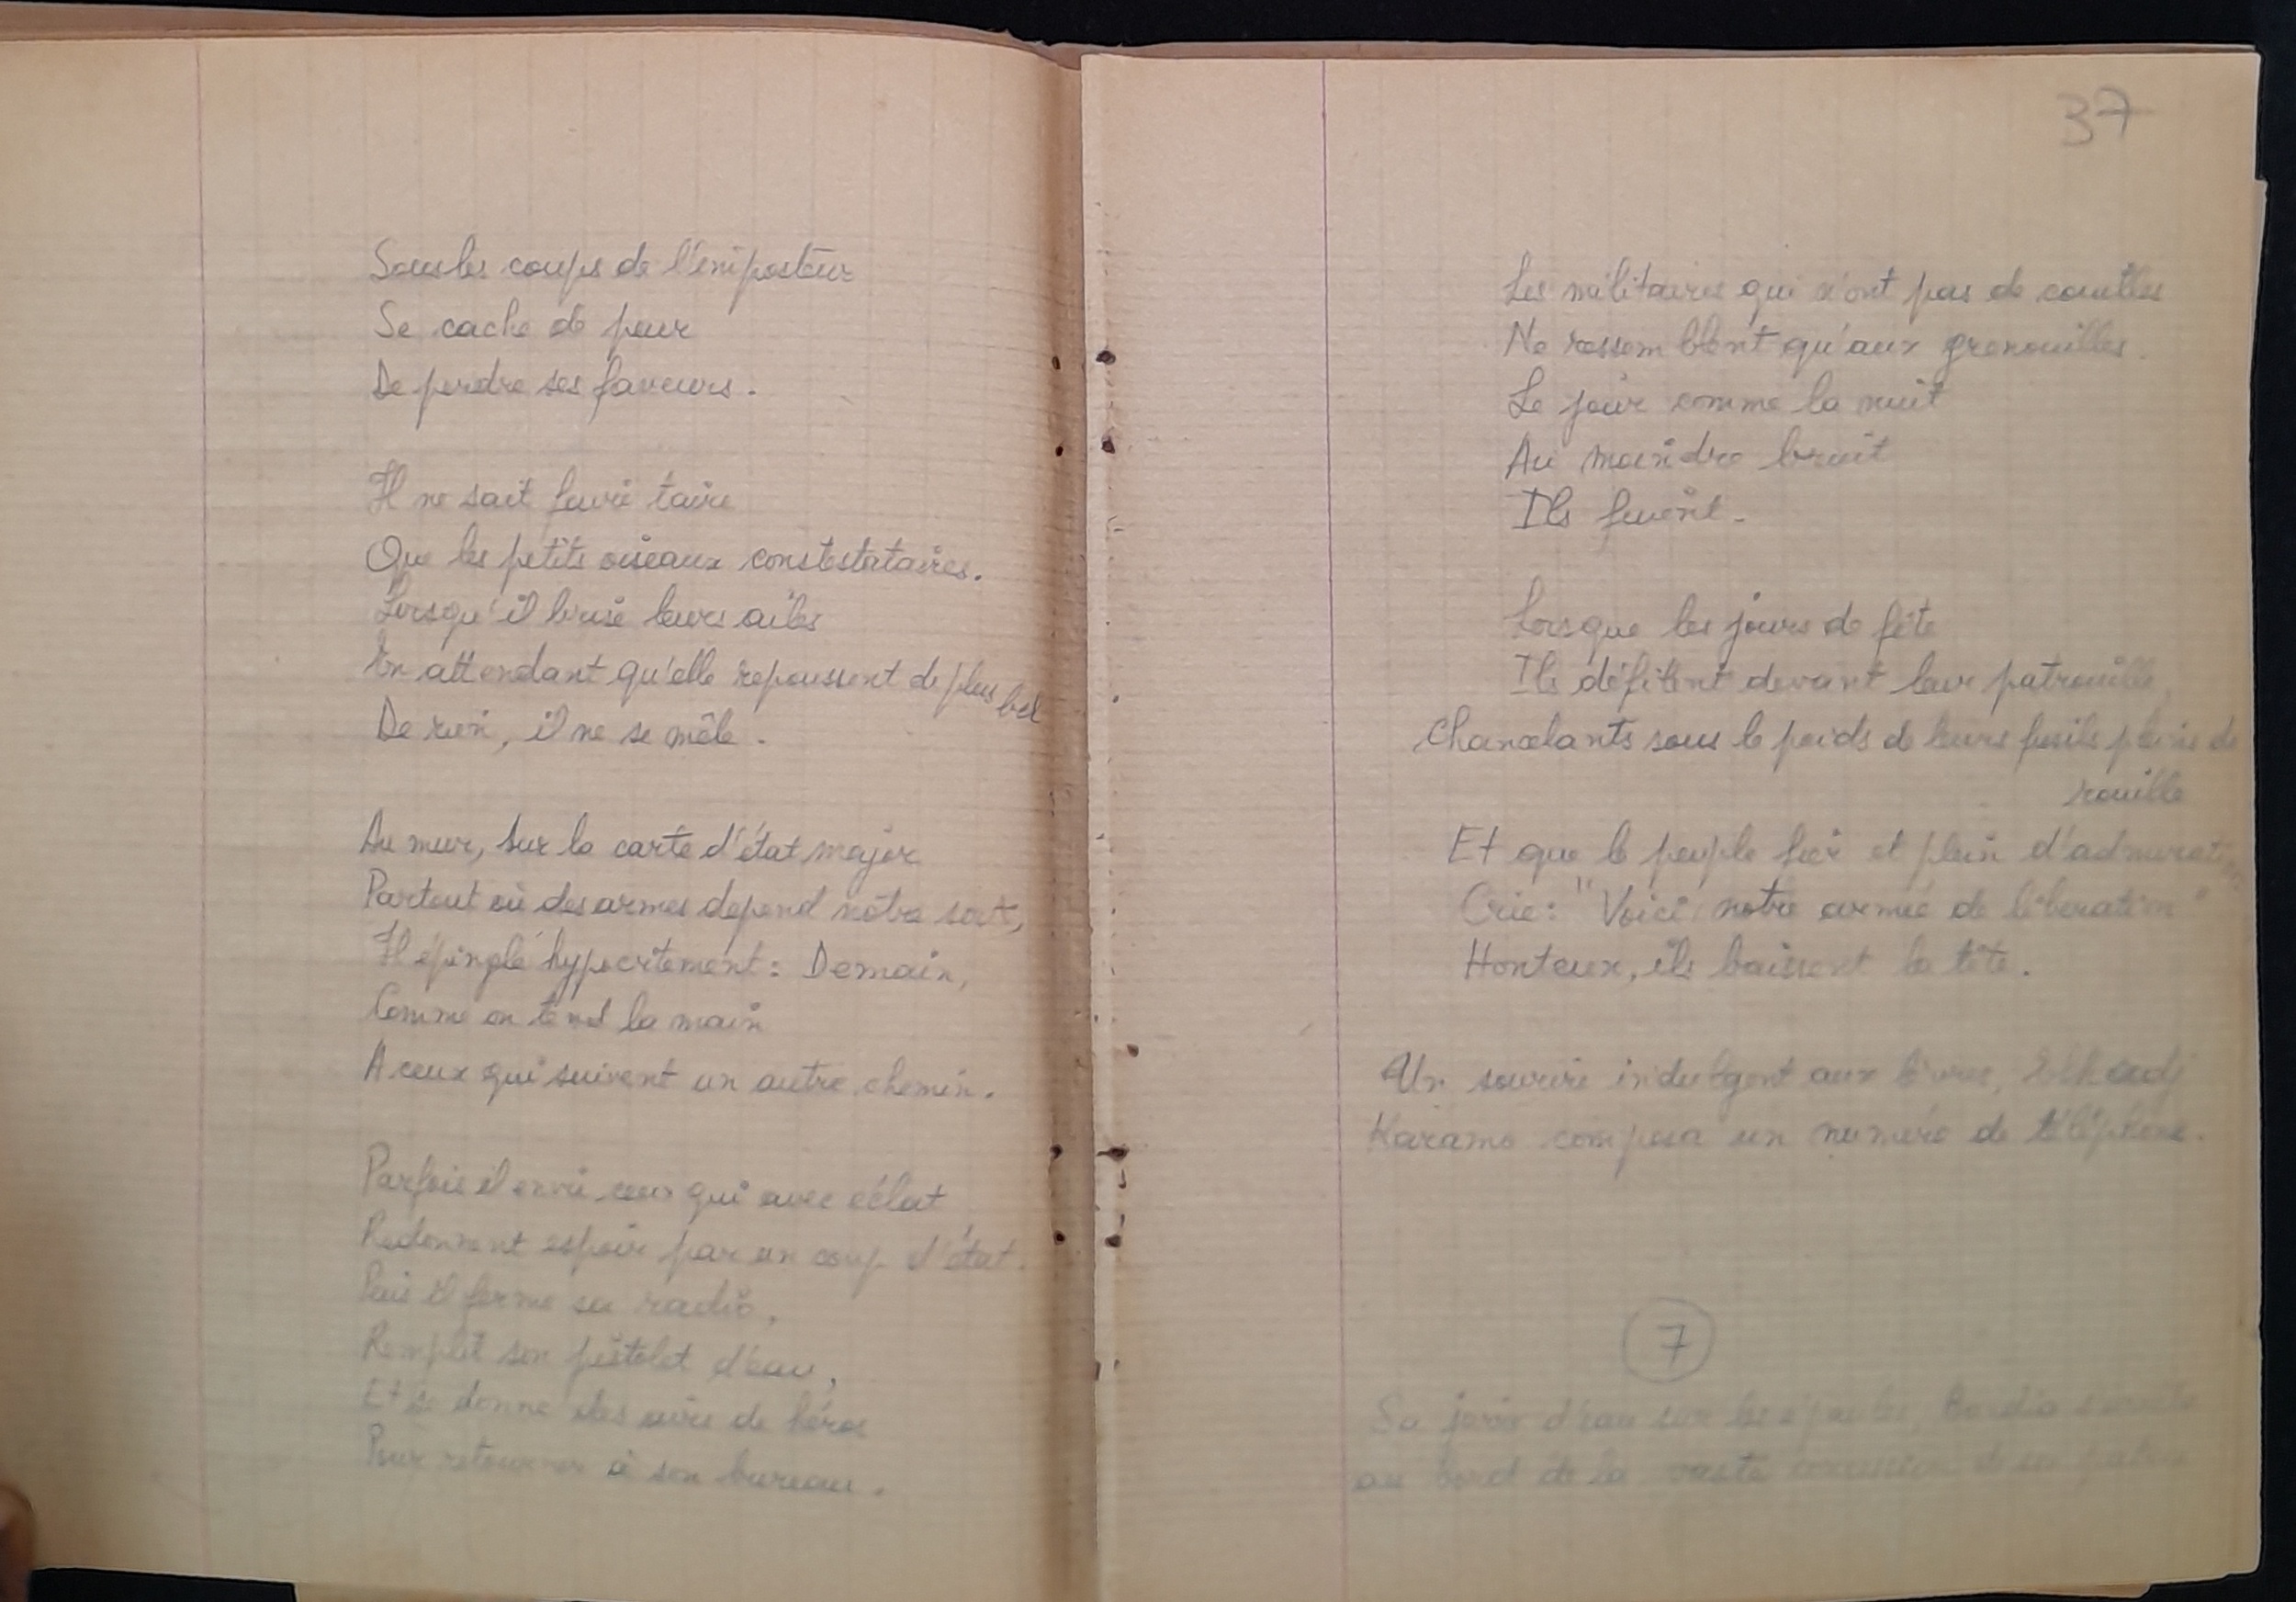 Sous les coups de l'emposteur
Se cache de peur
De perdre ses faveurs.
Il ne sait faire taire
Que les petits oiseaux constestataires.
Lorsqu'il brise leurs ailes
En attendant qu'elle repoussent de plus bel
De rien, il ne se mêle.
Au mur, sur la carte d'état major
Partout où des armes depend notre sort,
Il épingle hypocritement : Demain,
Comme on tend la main
A ceux qui suivent un autre chemin.
Parfois il envie ceux qui avec éclat
Redonnent espoir par un coup d'état.
Puis il ferme sa radio,
Remplit son pistolet d'eau,
Et se donne des airs de héros
Pour retourner à son bureau.
37
Les militaires qui n'ont pas de couilles
Ne ressemblent qu'aux grenouilles.
Le jour comme la nuit
Au moindre bruit
Ils fuient.
Lorsque les jours de fête
Ils défilent devant leur patrouille,
Chancelants sous le poids de leurs fusils pleins de
rouille
Et que le peuple fier et plein d'admiration
Crie : "Voici notre armée de libération"
Honteux, ils baissent la tête.
Un sourire indulgent aux lèvres, Elhadj
Karamo composa un numéro de téléphone.
7
Sa jarre d'eau sur les épaules,
au bord de la vaste